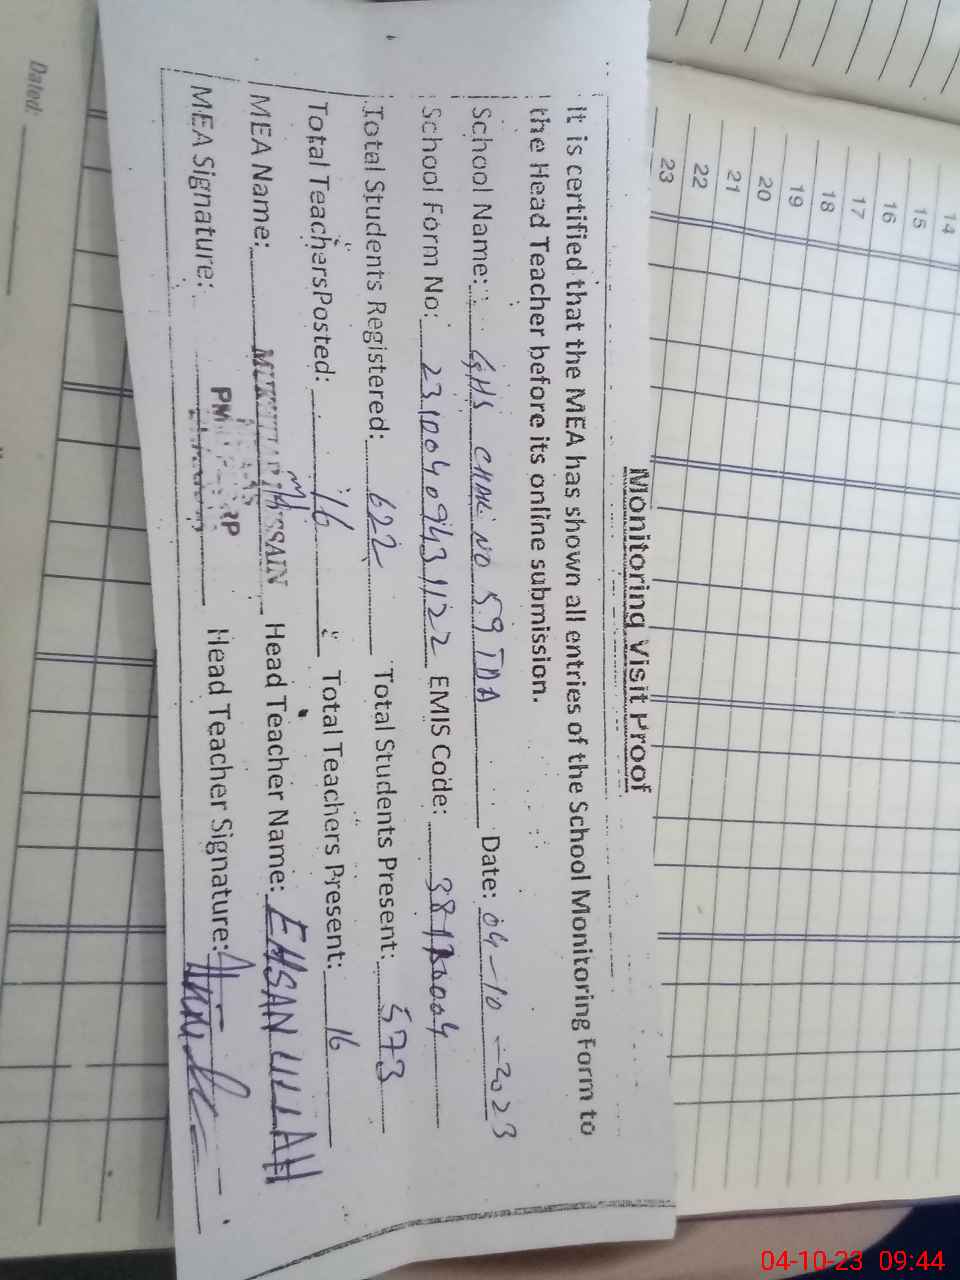 Monitoring Visit Proof
It is certified that the MEA has shown all entries of the School Monitoring Form to
the Head Teacher before its online submission.
School Name: GHS CHAK NO 59 TDA Date: 04-10-2023
School Form No: 2310040943122 EMIS Code:
Total Students Registered: 622 Total Students Present: 573
Total TeachersPosted: 16 Total Teachers Present: 16
MEA Name: HUSSAIN Head Teacher Name: EHSAN ULLAH
MEA Signature: Head Teacher Signature:
14
15
16
17
18
19
20
21
22
23
Dated:
04-10-23 09:44